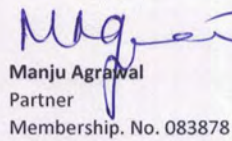 Manju Agrawal
Partner
Membership. No. 083878